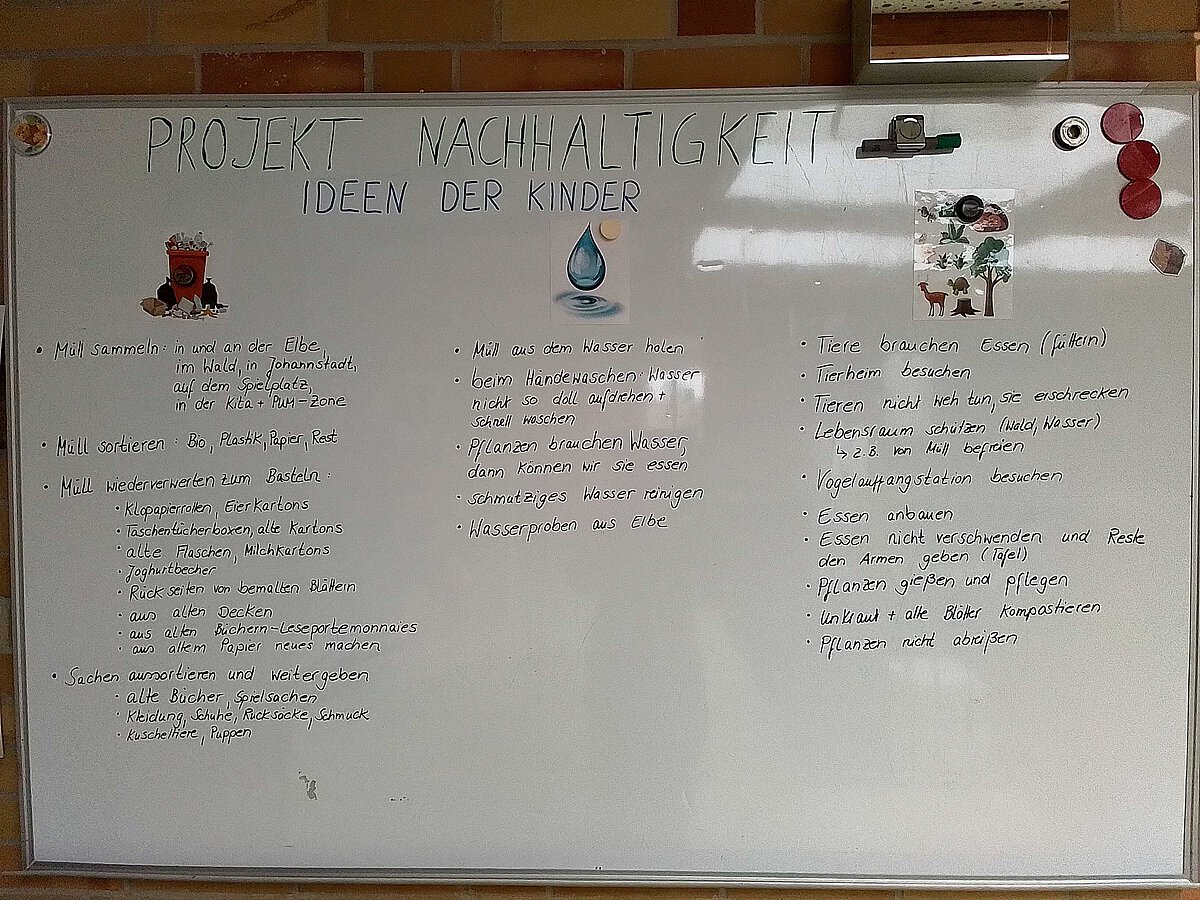 PROJEKT NACHHALTIGKEIT
IDEEN DER KINDER
• Müll sammeln: in und an der Elbe,
im Wald, in Johannstadt,
auf dem Spielplatz,
in der Kita + PuM-Zone
• Müll sortieren: Bio, Plastik, Papier, Rest
• Müll wiederverwerten zum Basteln:
• Klopapierrollen, Eierkartons
• Taschentücherboxen, alte Kartons
• alte Flaschen, Milchkartons
• Joghurtbecher
• Rückseiten von bemalten Blättern
• aus alten Decken
• aus alten Büchern - Leseportemonnaies
• aus altem Papier neues machen
• Sachen aussortieren und weitergeben
• alte Bücher, Spielsachen
• Kleidung, Schuhe, Rucksäcke, Schmuck
• Kuscheltiere, Puppen
• Müll aus dem Wasser holen
• beim Händewaschen: Wasser
nicht so doll aufdrehen +
schnell waschen
• Pflanzen brauchen Wasser,
dann können wir sie essen
• schmutziges Wasser reinigen
• Wasserproben aus Elbe
• Tiere brauchen Essen (füttern)
• Tierheim besuchen
• Tieren nicht weh tun, sie erschrecken
• Lebensraum schützen (Wald, Wasser)
↳ z.B. von Müll befreien
• Vogelauffangstation besuchen
• Essen anbauen
• Essen nicht verschwenden und Reste
den Armen geben (Tafel)
• Pflanzen gießen und pflegen
• Unkraut + alte Blätter kompostieren
• Pflanzen nicht abreißen